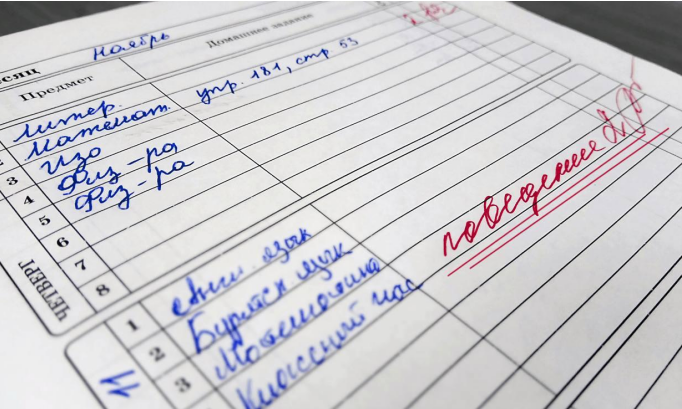 есяц Ноябрь
Предмет Домашнее задание
Литер.
Математ. упр. 181, стр 53
3 Изо
4 Физ-ра
5 Физ-ра
6
7
8
ЧЕТВЕРГ
поведение
1 Англ. язык
2 Бурятск язык
3 Математика
Классный час
11